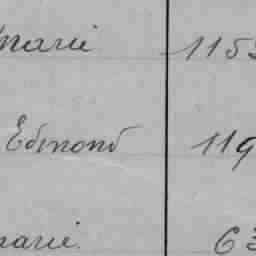 Marie 1153
Edmond 119
Marie 63